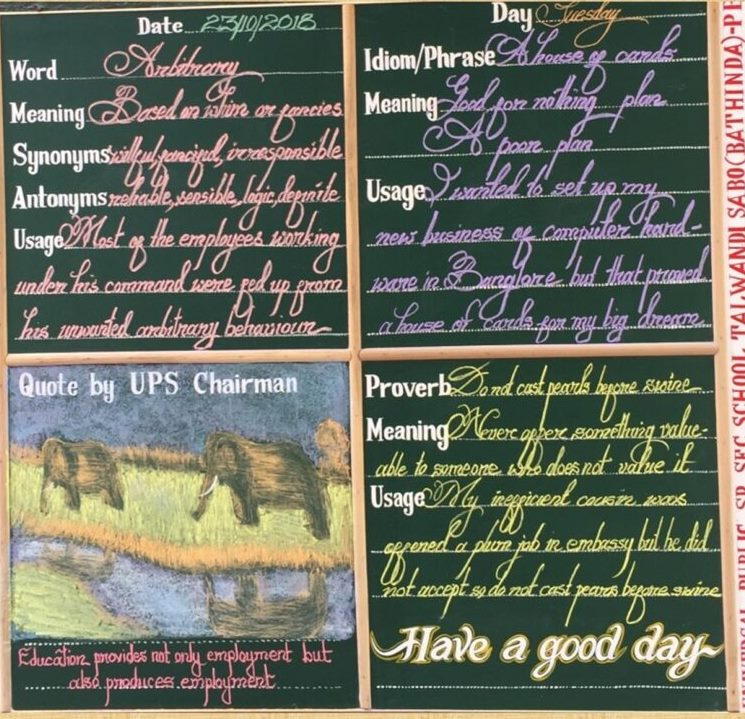 Date 23/10/2018
Word Arbitrary
Meaning Based on whim or fancies
Synonyms wilful, fanciful, irresponsible
Antonyms reliable, sensible, logic, definite
Usage Most of the employees working
under his command were fed up from
his unwanted arbitrary behaviour
Day Tuesday
Idiom/Phrase A house of cards
Meaning Good for nothing plan
A poor plan
Usage I wanted to set up my
new business of computer hard-
ware in Banglore but that proved
a house of cards for my big dream
Quote by UPS Chairman
Education provides not only employment but
also produces employment
Proverb Do not cast pearls before swine
Meaning Never offer something valu-
able to someone who does not value it
Usage My inefficient cousin was
offered a plum job in embassy but he did
not accept so do not cast pearls before swine
Have a good day
PUBLIC SR. SEC. SCHOOL, TALWANDI SABO (BATHINDA)-P